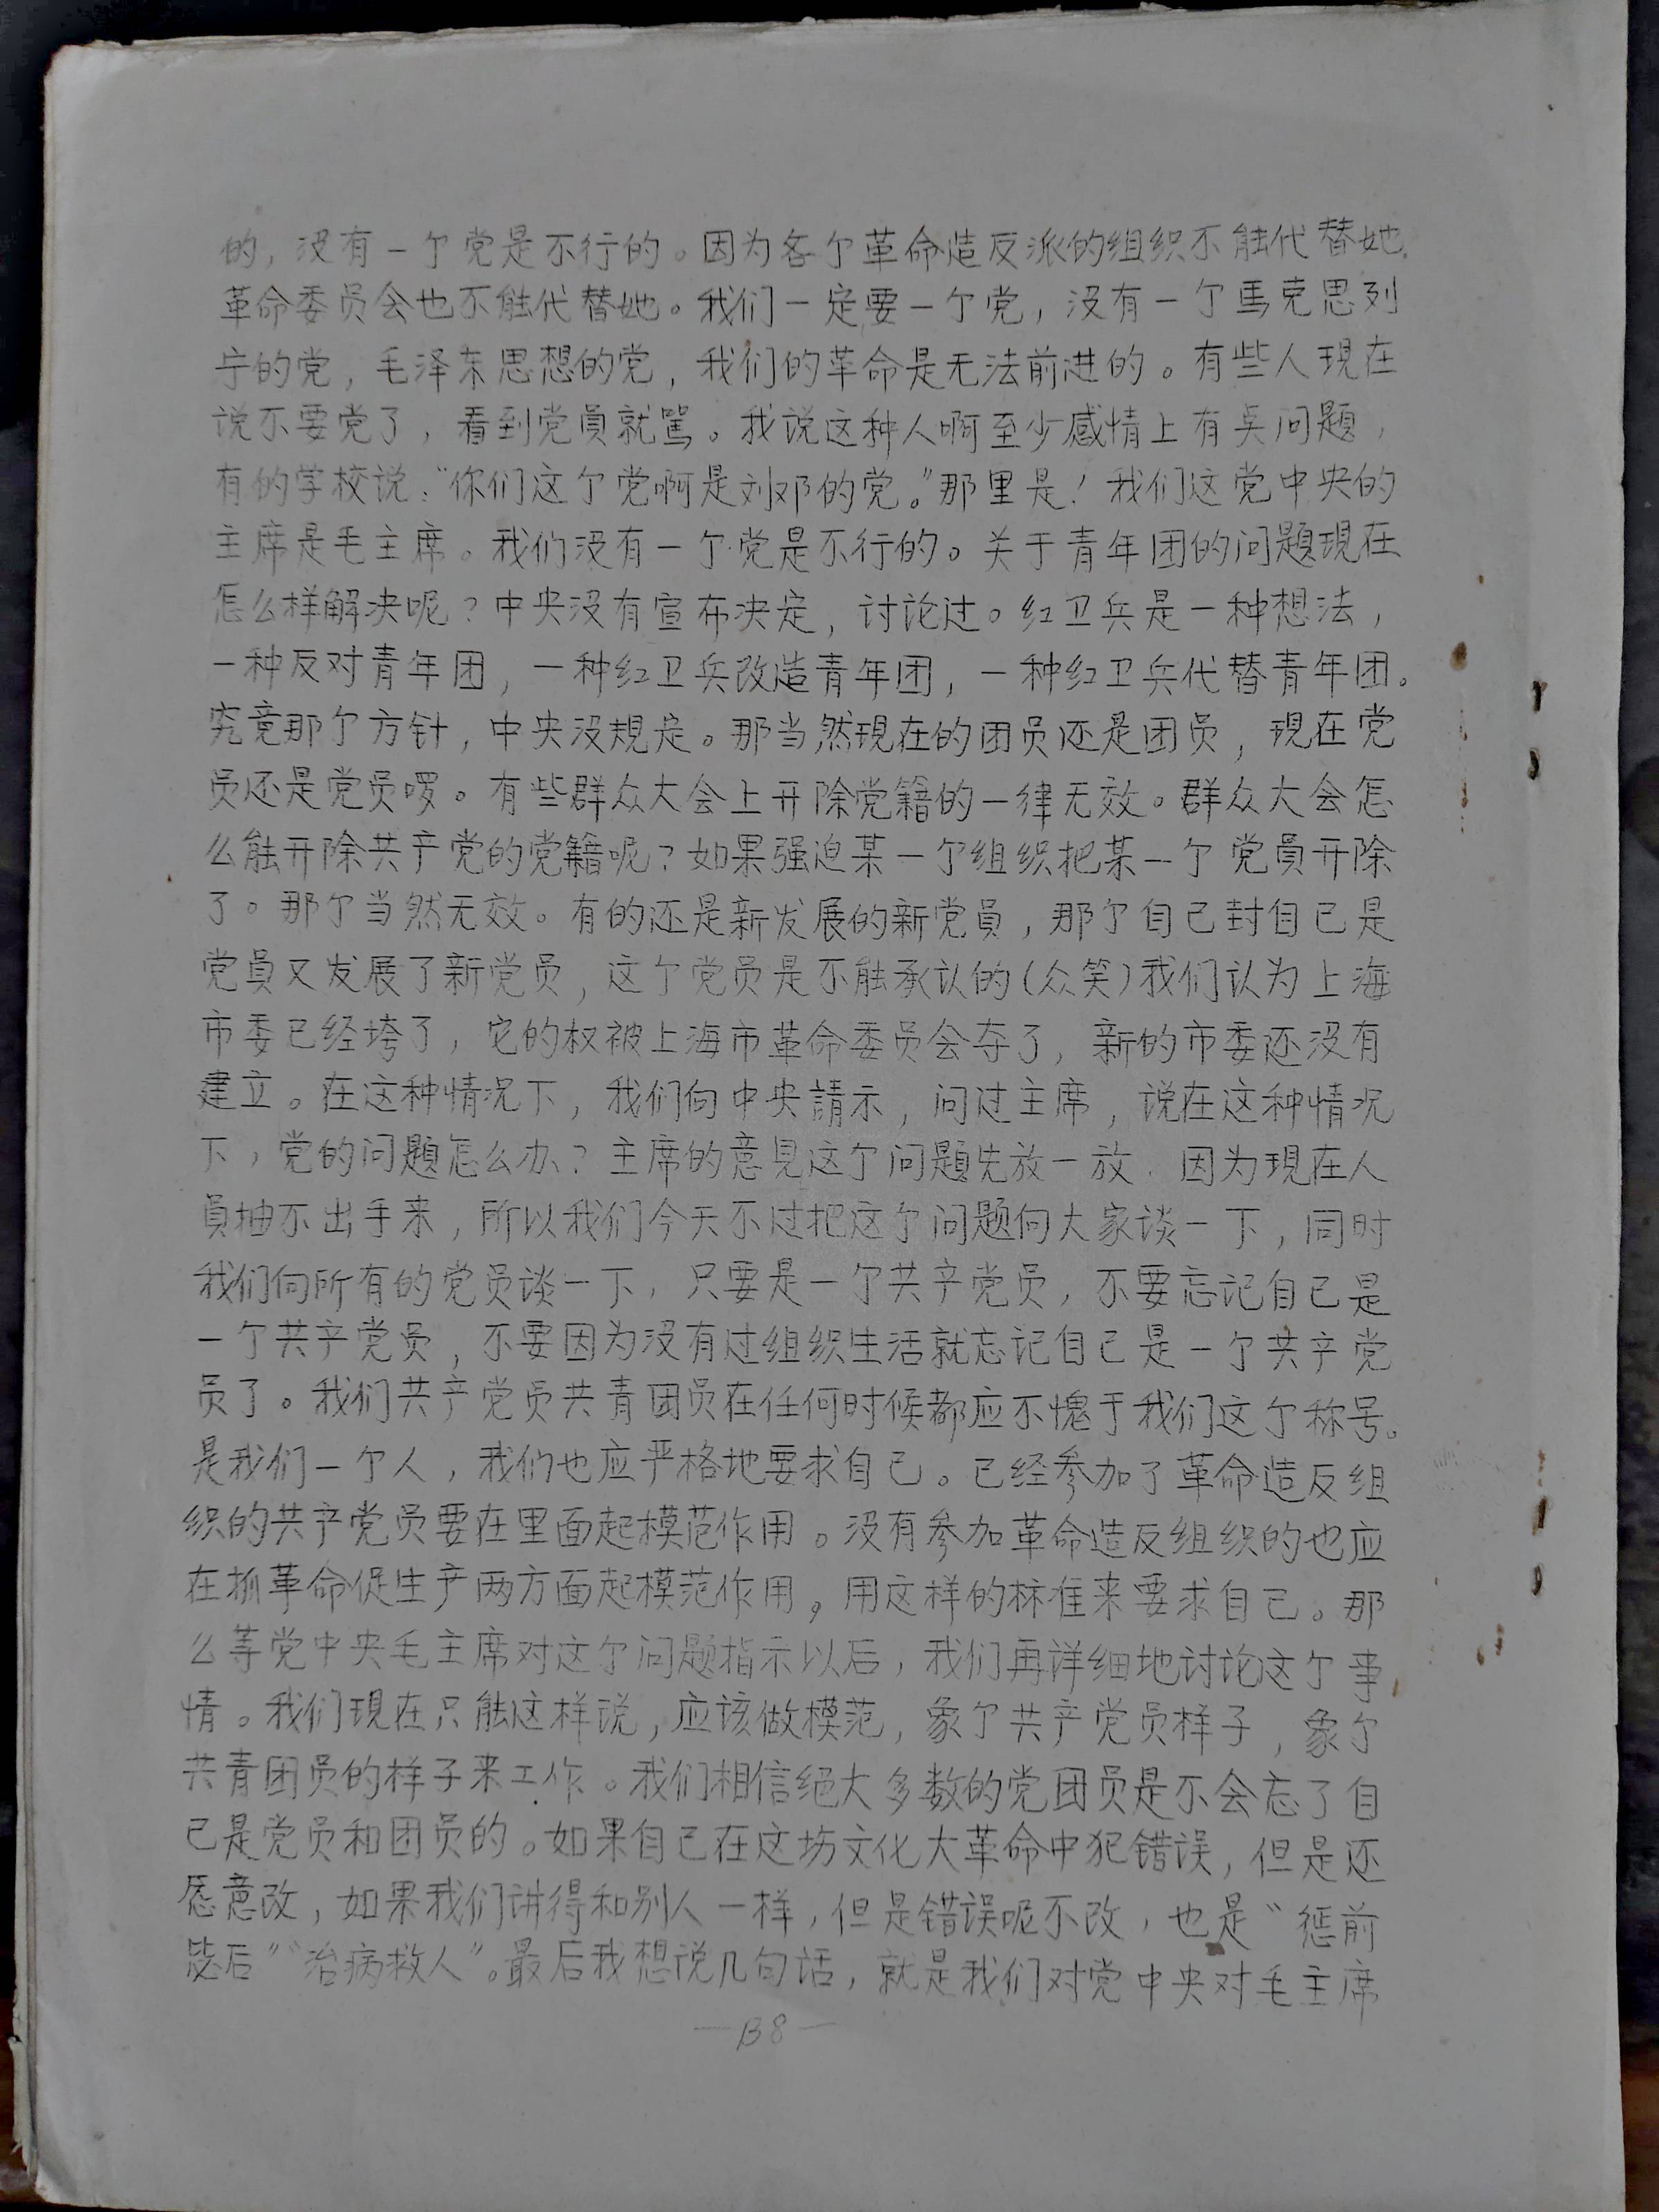 的，没有一个党是不行的。因为各个革命造反派的组织不能代替她.
革命委员会也不能代替她。我们一定要一个党，没有一个馬克思列
宁的党，毛泽东思想的党，我们的革命是无法前进的。有些人現在
说不要党了，看到党員就駡。我说这种人啊至少感情上有奌问题，
有的学校说：“你们这个党啊是刘邓的党。”那里是！我们这党中央的
主席是毛主席。我们没有一个党是不行的。关于青年团的问題現在
怎么样解决呢？中央没有宣布决定，讨论过。红卫兵是一种想法，
一种反对青年团，一种红卫兵改造青年团，一种红卫兵代替青年团。
究竟那个方针，中央没規定。那当然現在的团员还是团员，現在党
员还是党员啰。有些群众大会上开除党籍的一律无效。群众大会怎
么能开除共产党的党籍呢？如果强迫某一个组织把某一个党員开除
了。那个当然无效。有的还是新发展的新党員，那个自己封自己是
党員又发展了新党员，这个党员是不能承认的（众笑）我们认为上海
市委已经垮了，它的权被上海市革命委员会夺了，新的市委还没有
建立。在这种情况下，我们向中央請示，问过主席，说在这种情况
下，党的问題怎么办？主席的意見这个问題先放一放．因为現在人
員抽不出手来，所以我们今天不过把这个问题向大家谈一下，同时
我们向所有的党员谈一下，只要是一个共产党员，不要忘记自己是
一个共产党员，不要因为没有过组织生活就忘记自己是一个共产党
员了。我们共产党员共青团员在任何时候都应不愧于我们这个称号。
是我们一个人，我们也应严格地要求自己。已经参加了革命造反组
织的共产党员要在里面起模范作用。没有参加革命造反组织的也应
在抓革命促生产两方面起模范作用，用这样的标准来要求自己。那
么等党中央毛主席对这个问题指示以后，我们再详细地讨论这个事
情。我们現在只能这样说，应该做模范，象个共产党员样子，象个
共青团员的样子来工作。我们相信绝大多数的党团员是不会忘了自
己是党员和团员的。如果自己在这场文化大革命中犯错误，但是还
愿意改，如果我们讲得和别人一样，但是错误呢不改，也是“惩前
毖后”“治病救人”。最后我想说几句话，就是我们对党中央对毛主席
—B8—